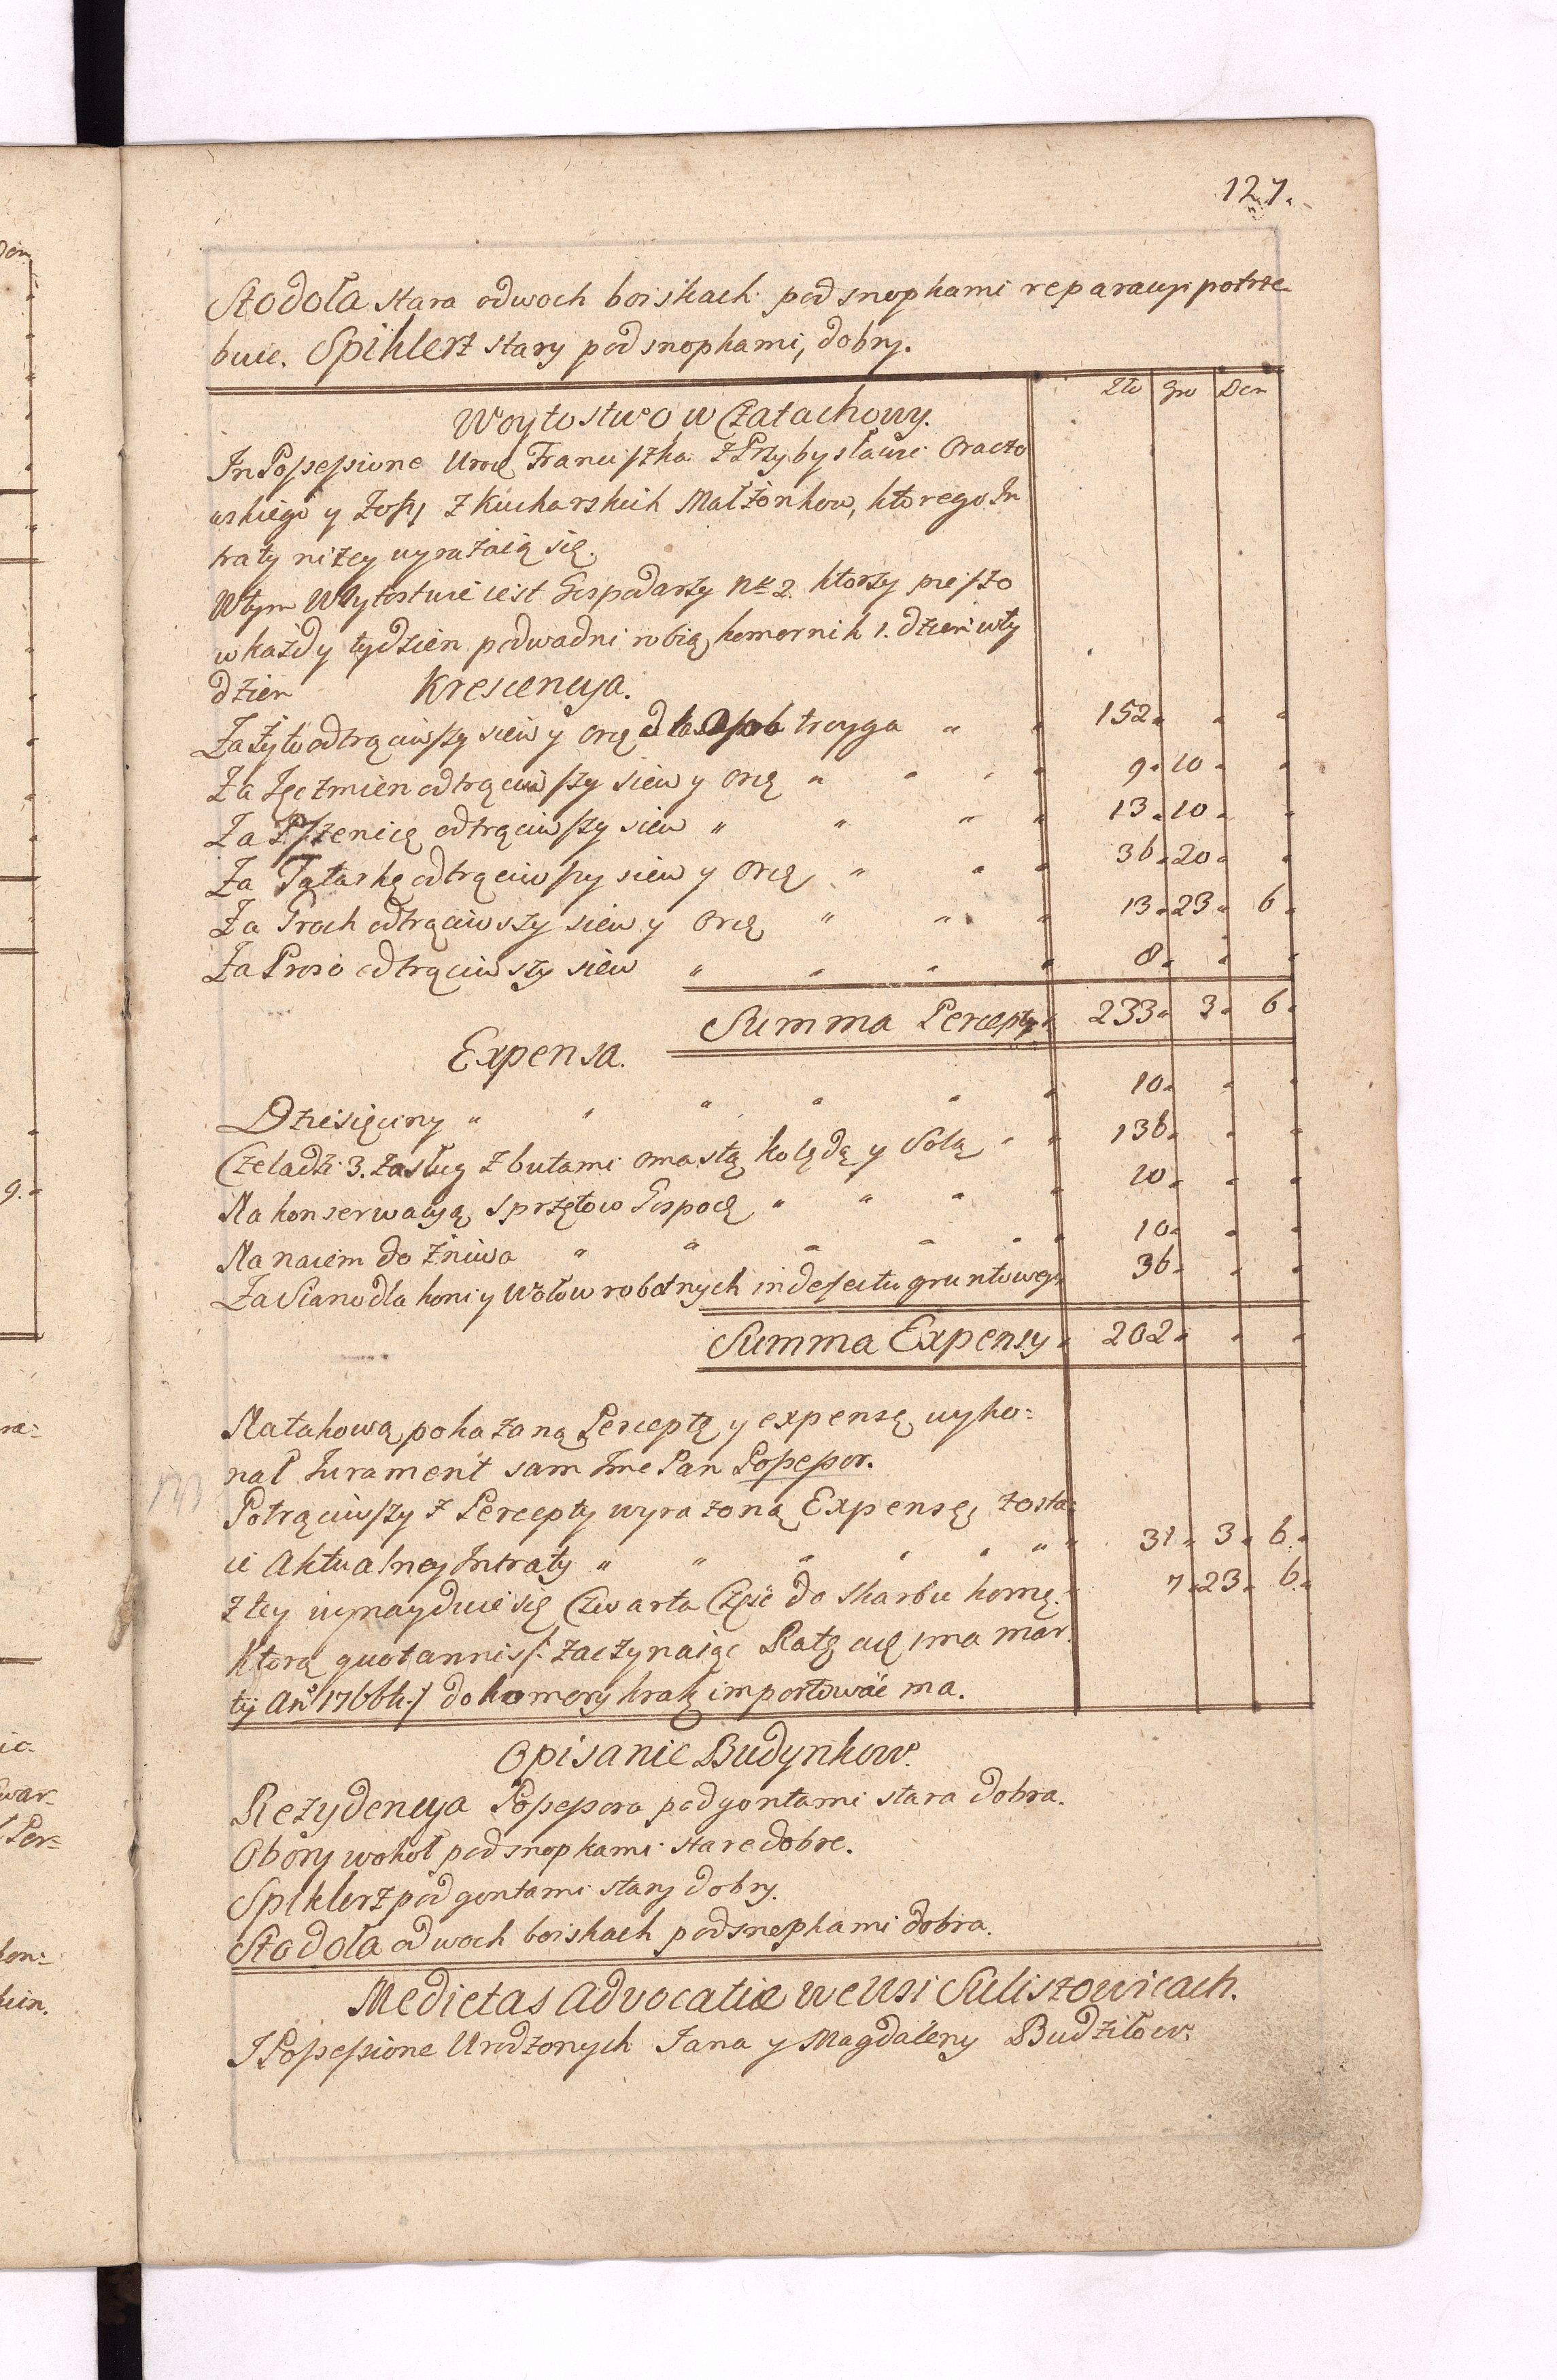 127.
Stodoła stara odwoch boiskach pod snopkami reparacyi potrze-
buie. Spihlerz stary pod snopkami, dobry.
Zło Gro Den
Woytostwo w Czatachowy.
In Possessione Urod Franciszka z Przybysławic Oraczo
wskiego y Zofij z Kucharskich Małżonkow, ktorego In
traty niżey wyrażaią się.
Wtym Woytostwie iest Gospodarzy Nr 2. ktorzy pieszo
w każdy tydzien podwadni robią, komornik 1. dzien wty
dzien Krescencya.
Za Żyto odtrąciwszy siew y Ord dla Osob troyga " " 152 " "
Za Jęczmien odtrąciwszy siew y Ord " " " " 9 " 10 " "
Za Pszenicę odtrąciwszy siew " " " " 13 " 10 " "
Za Tatarkę odtrąciwszy siew y Ord " " " 36 " 20 " "
Za Groch odtrąciwszy siew y Ord " " " 13 " 23 " 6 "
Za Proso odtrąciwszy siew " " " " 8 " " "
Summa Percepty " 233 " 3 " 6 "
Expensa.
Dziesięciny " " " " " " 10 " " "
Czeladzi 3. zasług z butami omastą kolędą y Solą " " 136 " " "
Na konserwacyą Sprzętow Gospod " " " " 10 " " "
Na naiem do Żniwa " " " " " " 10 " " "
Za Siano dla koni y Wołow robotnych in defectu gruntowego 36 " " "
Summa Expensy " 202 " " "
Na takową pokazaną Perceptę y expensę wyko=
nał Jurament sam Jmc Pan Possessor.
Potrąciwszy z Percepty wyrażoną Expensę, zosta=
ie Aktualney Intraty " " " " " " " 31 " 3 " 6 "
Z tey wynayduie się Czwarta Część do Skarbu Koronę. 7 " 23 " 6 "
Ktorą quotannis /: zaczynaiąc Ratę a 1ma Mar.
tij Ano 1766ti :/ do komory krak importować ma.
Opisanie Budynkow.
Rezydencya Possessora pod gontami stara dobra.
Obory wokoł pod snopkami stare dobre.
Spiklerz pod gontami stary dobry.
Stodoła odwoch boiskach pod snopkami dobra.
Medietas Advocatiæ we Wsi Suliszowicach.
I Possessione Urodzonych Jana y Magdaleny Budziłow.